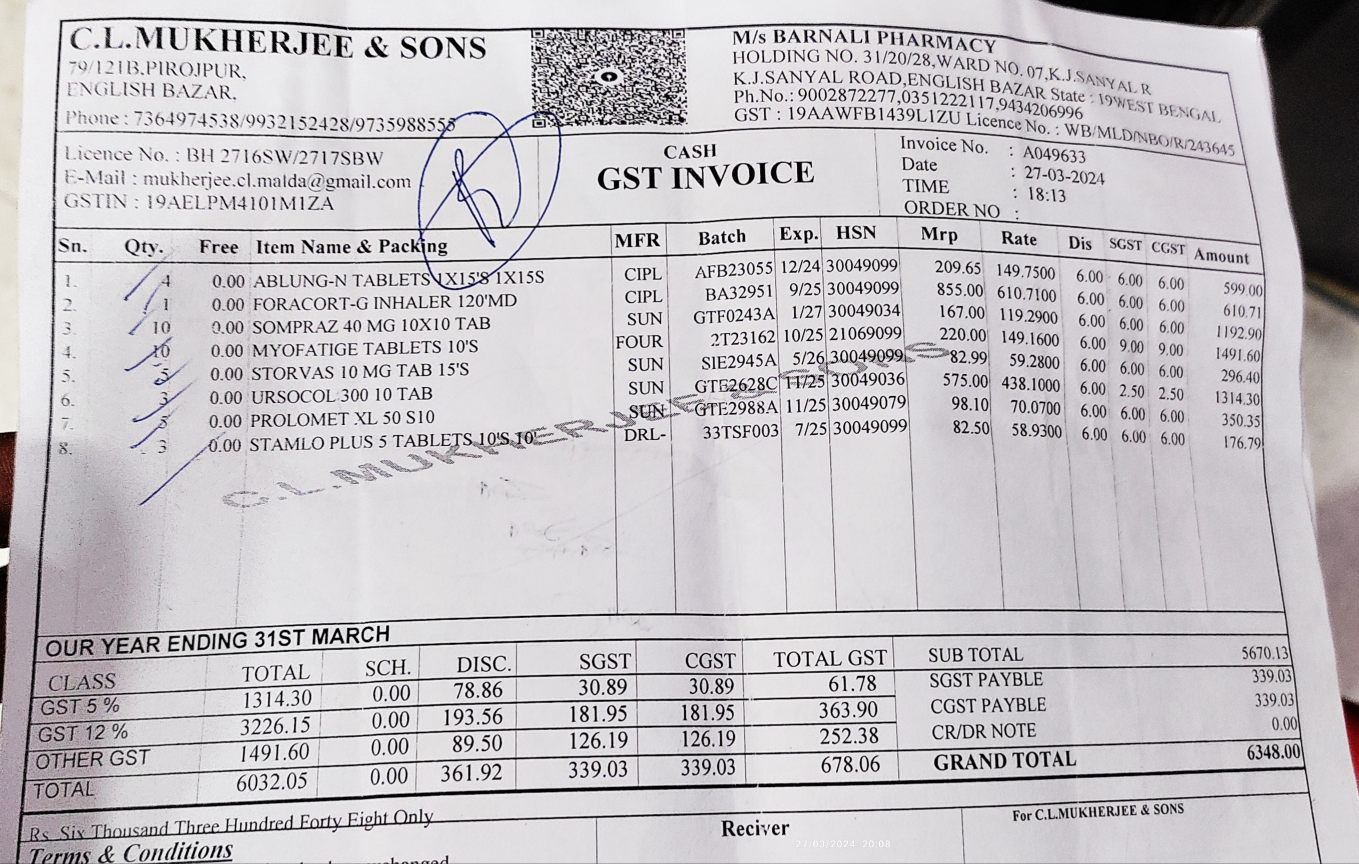 C.L.MUKHERJEE & SONS
79/121B,PIROJPUR,
ENGLISH BAZAR,
Phone : 7364974538/9932152428/9735988555
M/s BARNALI PHARMACY
HOLDING NO. 31/20/28,WARD NO. 07,K.J.SANYAL R
K.J.SANYAL ROAD,ENGLISH BAZAR State : 19WEST BENGAL
Ph.No.: 9002872277,0351222117,9434206996
GST : 19AAWFB1439L1ZU Licence No. : WB/MLD/NBO/R/243645
Licence No. : BH 2716SW/2717SBW
E-Mail : mukherjee.cl.malda@gmail.com
GSTIN : 19AELPM4101M1ZA
CASH
GST INVOICE
Invoice No. : A049633
Date : 27-03-2024
TIME : 18:13
ORDER NO :
Sn. Qty. Free Item Name & Packing MFR Batch Exp. HSN Mrp Rate Dis SGST CGST Amount
1. 4 0.00 ABLUNG-N TABLETS 1X15'S 1X15S CIPL AFB23055 12/24 30049099 209.65 149.7500 6.00 6.00 6.00 599.00
2. 1 0.00 FORACORT-G INHALER 120'MD CIPL BA32951 9/25 30049099 855.00 610.7100 6.00 6.00 6.00 610.71
3. 10 0.00 SOMPRAZ 40 MG 10X10 TAB SUN GTF0243A 1/27 30049034 167.00 119.2900 6.00 6.00 6.00 1192.90
4. 10 0.00 MYOFATIGE TABLETS 10'S FOUR 2T23162 10/25 21069099 220.00 149.1600 6.00 9.00 9.00 1491.60
5. 5 0.00 STORVAS 10 MG TAB 15'S SUN SIE2945A 5/26 30049099 82.99 59.2800 6.00 6.00 6.00 296.40
6. 3 0.00 URSOCOL 300 10 TAB SUN GTE2628C 11/25 30049036 575.00 438.1000 6.00 2.50 2.50 1314.30
7. 5 0.00 PROLOMET XL 50 S10 SUN GTE2988A 11/25 30049079 98.10 70.0700 6.00 6.00 6.00 350.35
8. 3 0.00 STAMLO PLUS 5 TABLETS 10'S 10' DRL- 33TSF003 7/25 30049099 82.50 58.9300 6.00 6.00 6.00 176.79
C.L.MUKHERJEE & SONS
OUR YEAR ENDING 31ST MARCH
CLASS TOTAL SCH. DISC. SGST CGST TOTAL GST
GST 5 % 1314.30 0.00 78.86 30.89 30.89 61.78
GST 12 % 3226.15 0.00 193.56 181.95 181.95 363.90
OTHER GST 1491.60 0.00 89.50 126.19 126.19 252.38
TOTAL 6032.05 0.00 361.92 339.03 339.03 678.06
SUB TOTAL 5670.13
SGST PAYBLE 339.03
CGST PAYBLE 339.03
CR/DR NOTE 0.00
GRAND TOTAL 6348.00
Rs. Six Thousand Three Hundred Forty Eight Only
Terms & Conditions
Reciver
For C.L.MUKHERJEE & SONS
27/03/2024 20:08